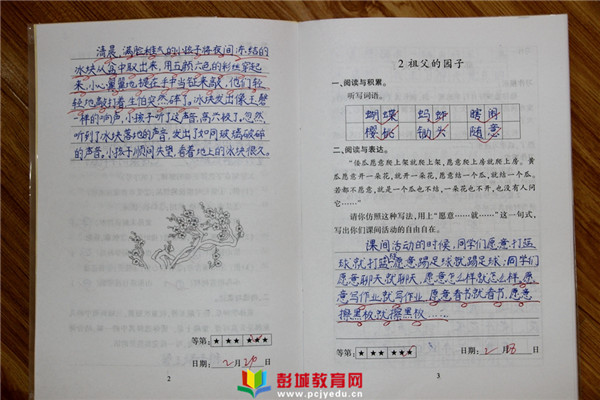 清晨,满脸稚气的小孩子将夜间冻结的
冰块从盆中取出来,用五颜六色的彩丝穿起
来,小心翼翼地提在手中当钲来敲,他们轻
轻地敲打着生怕突然碎了。冰块发出像玉磬
一样的响声,小孩子听了这声音,高兴极了。忽然,
听到了冰块落地的声音,发出了如同玻璃破碎
的声音,小孩子顺间失望,看着地上的冰块很久。
等第: ★ ★★ ★★★
日期: 2 月 20 日
2
2 祖父的园子
一、阅读与积累。
听写词语。
蝴蝶 蚂蚱 瞎闹
樱桃 锄头 随意
二、阅读与表达。
“倭瓜愿意爬上架就爬上架,愿意爬上房就爬上房。黄
瓜愿意开一朵花,就开一朵花,愿意结一个瓜,就结一个瓜。
若都不愿意,就是一个瓜也不结,一朵花也不开,也没有人问
它……”
请你仿照这种写法,用上“愿意……就……”这一句式,
写出你们课间活动的自由自在。
课间活动的时候,同学们愿意打篮
球,就打篮球,愿意踢足球,就踢足球;同学们
愿意聊天,就聊天,愿意怎么样就怎么样,愿
意写作业,就写作业,愿意看书就看书,愿意
擦黑板,就擦黑板……
等第: ★ ★★ ★★★
日期: 2 月 日
3
彭城教育网
www.pcjyedu.cn